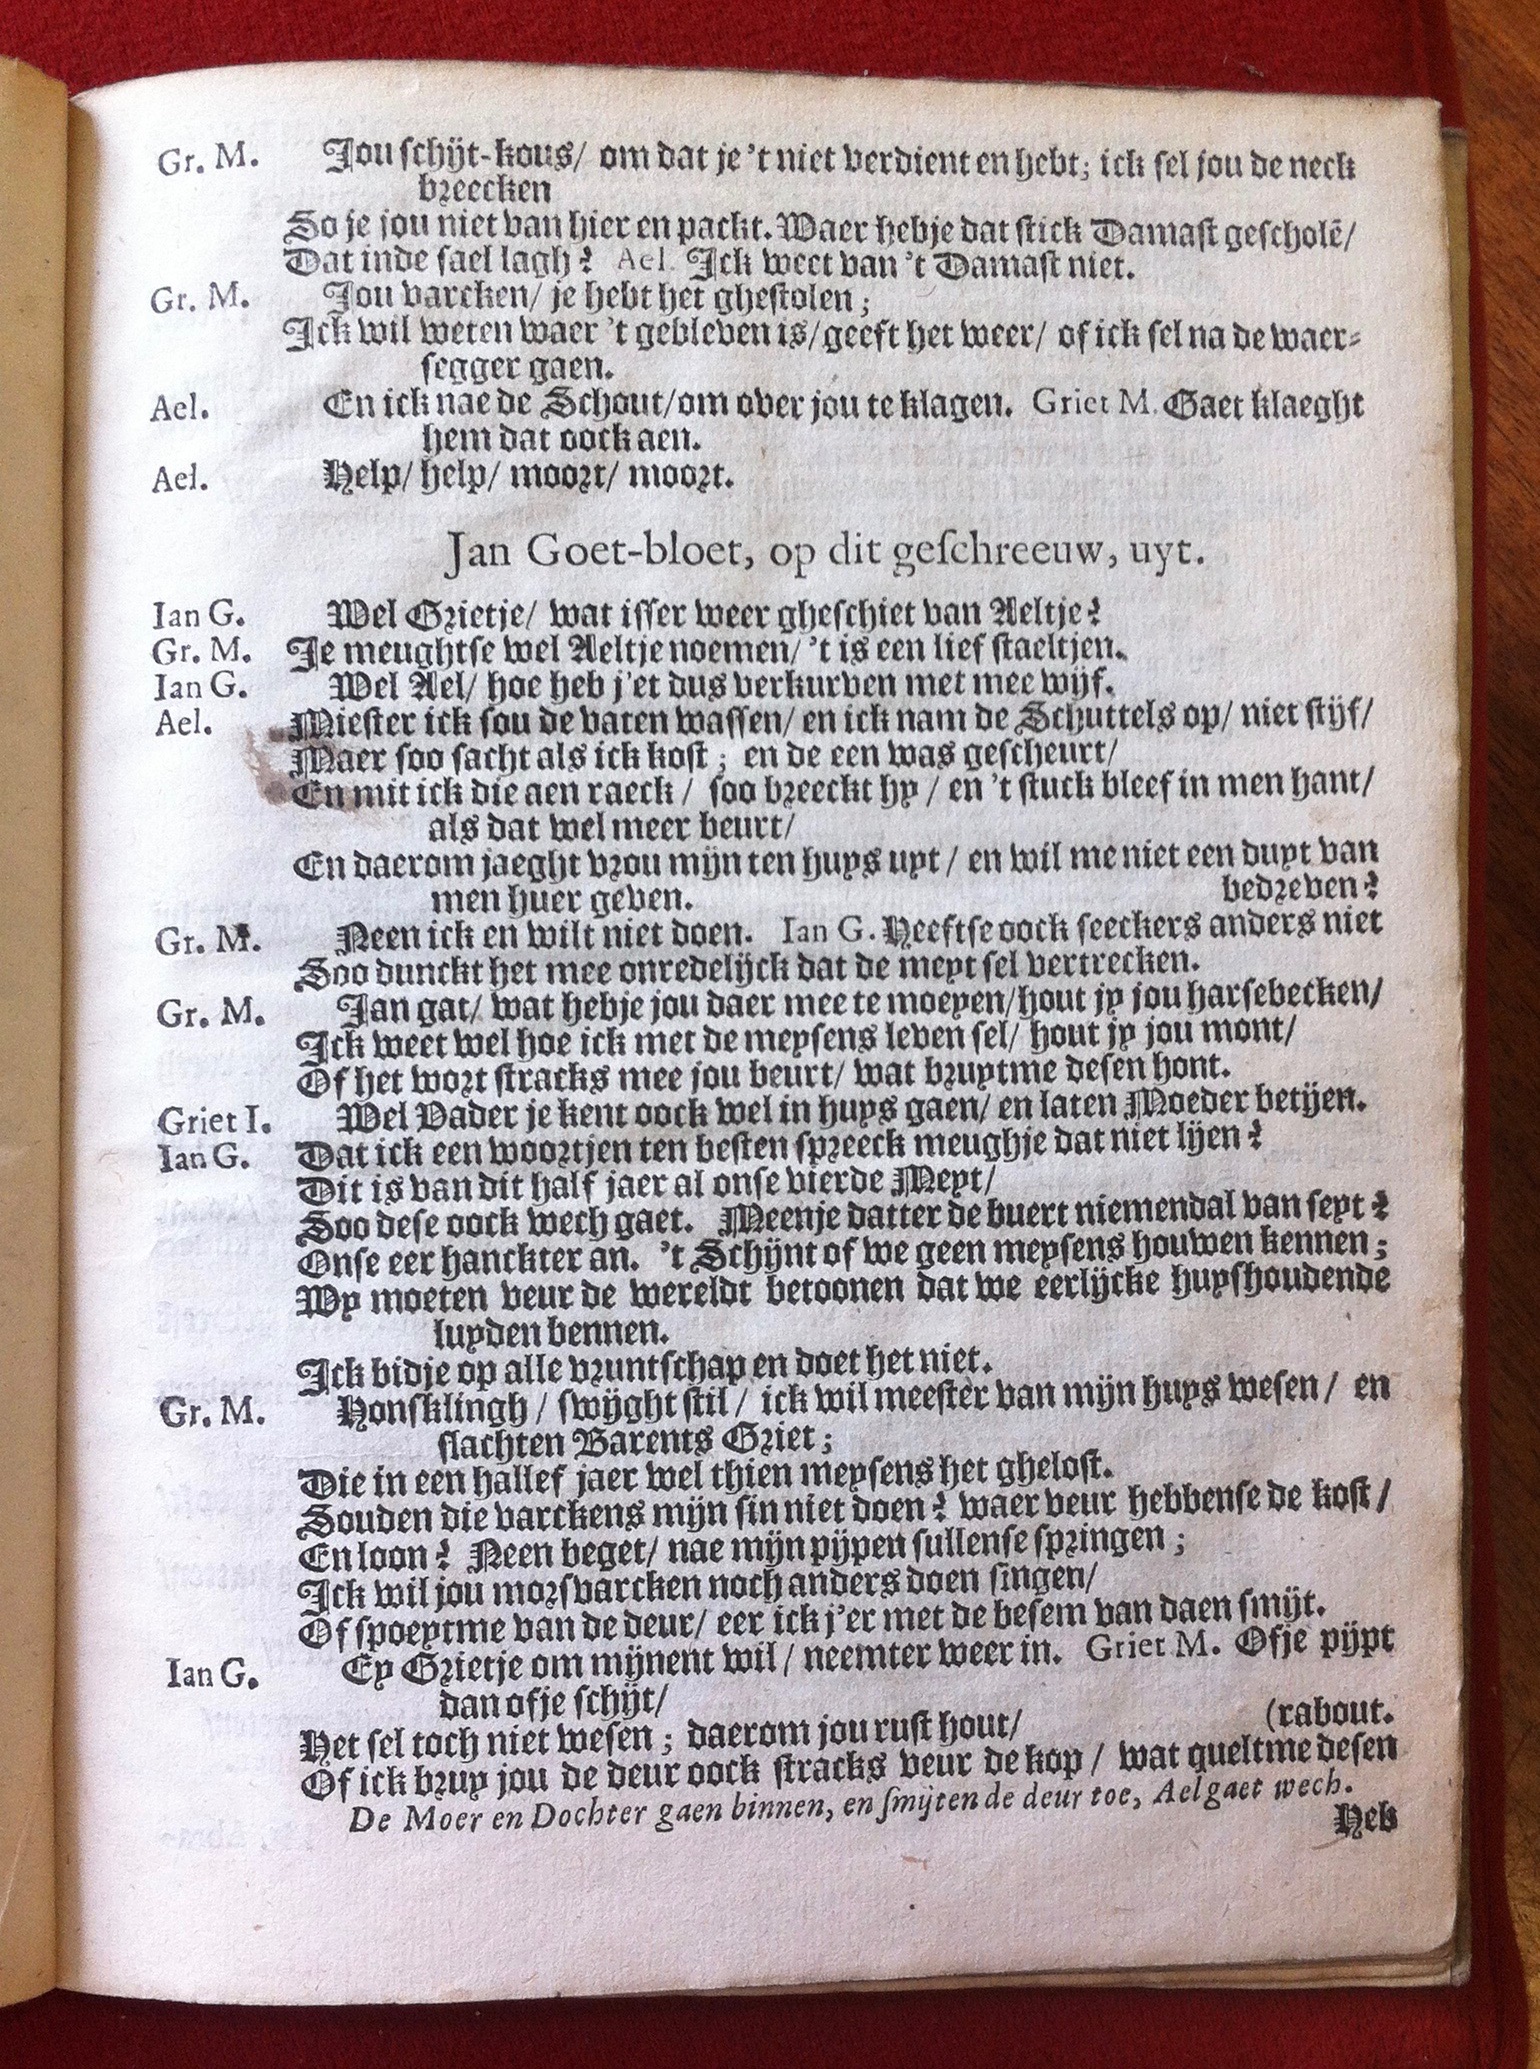 Gr. M. Jou schijt-kous/ om dat je 't niet verdient en hebt; ick sel jou de neck
breecken
So je jou niet van hier en packt. Waer hebje dat stick Damast gescholē/
Dat inde sael lagh? Ael. Ick weet van 't Damast niet.
Gr. M. Jou varcken/ je hebt het ghestolen;
Ick wil weten waer 't gebleven is/ geeft het weer/ of ick sel na de waer-
segger gaen.
Ael. En ick nae de Schout/ om over jou te klagen. Griet M. Gaet klaeght
hem dat oock aen.
Ael. Help/ help/ moort/ moort.
Jan Goet-bloet, op dit geschreeuw, uyt.
Ian G. Wel Grietje/ wat isser weer gheschiet van Aeltje?
Gr. M. Je meughtse wel Aeltje noemen/ 't is een lief staeltjen.
Ian G. Wel Ael/ hoe heb j'et dus verkurven met mee wijf.
Ael. Miester ick sou de vaten wassen/ en ick nam de Schuttels op/ niet stijf/
Maer soo sacht als ick kost; en de een was gescheurt/
En mit ick die aen raeck/ soo breeckt hy/ en 't stuck bleef in men hant/
als dat wel meer beurt/
En daerom jaeght vrou mijn ten huys uyt/ en wil me niet een duyt van
men huer geven. bedreven?
Gr. M. Neen ick en wilt niet doen. Ian G. Heeftse oock seeckers anders niet
Soo dunckt het mee onredelijck dat de meyt sel vertrecken.
Gr. M. Jan gat/ wat hebje jou daer mee te moeyen/ hout jy jou harsebecken/
Ick weet wel hoe ick met de meysens leven sel/ hout jy jou mont/
Of het wort stracks mee jou beurt/ wat bruytme desen hont.
Griet I. Wel Vader je kent oock wel in huys gaen/ en laten Moeder betijen.
Ian G. Dat ick een woortjen ten besten spreeck meughje dat niet lijen?
Dit is van dit half jaer al onse vierde Meyt/
Soo dese oock wech gaet. Meenje datter de buert niemendal van seyt?
Onse eer hanckter an. 't Schijnt of we geen meysens houwen kennen;
Wy moeten veur de wereldt betoonen dat we eerlijcke huyshoudende
luyden bennen.
Ick bidje op alle vruntschap en doet het niet.
Gr. M. Honsklingh/ swijght stil/ ick wil meester van mijn huys wesen/ en
slachten Barents Griet;
Die in een hallef jaer wel thien meysens het ghelost.
Souden die varckens mijn sin niet doen? waer veur hebbense de kost/
En loon? Neen beget/ nae mijn pijpen sullense springen;
Ick wil jou morsvarcken noch anders doen singen/
Of spoeytme van de deur/ eer ick j'er met de besem van daen smijt.
Ian G. Ey Grietje om mijnent wil/ neemter weer in. Griet M. Ofje pijpt
dan ofje schijt/
Het sel toch niet wesen; daerom jou rust hout/ (rabout.
Of ick bruy jou de deur oock stracks veur de kop/ wat queltme desen
De Moer en Dochter gaen binnen, en smijten de deur toe, Ael gaet wech.
Heb